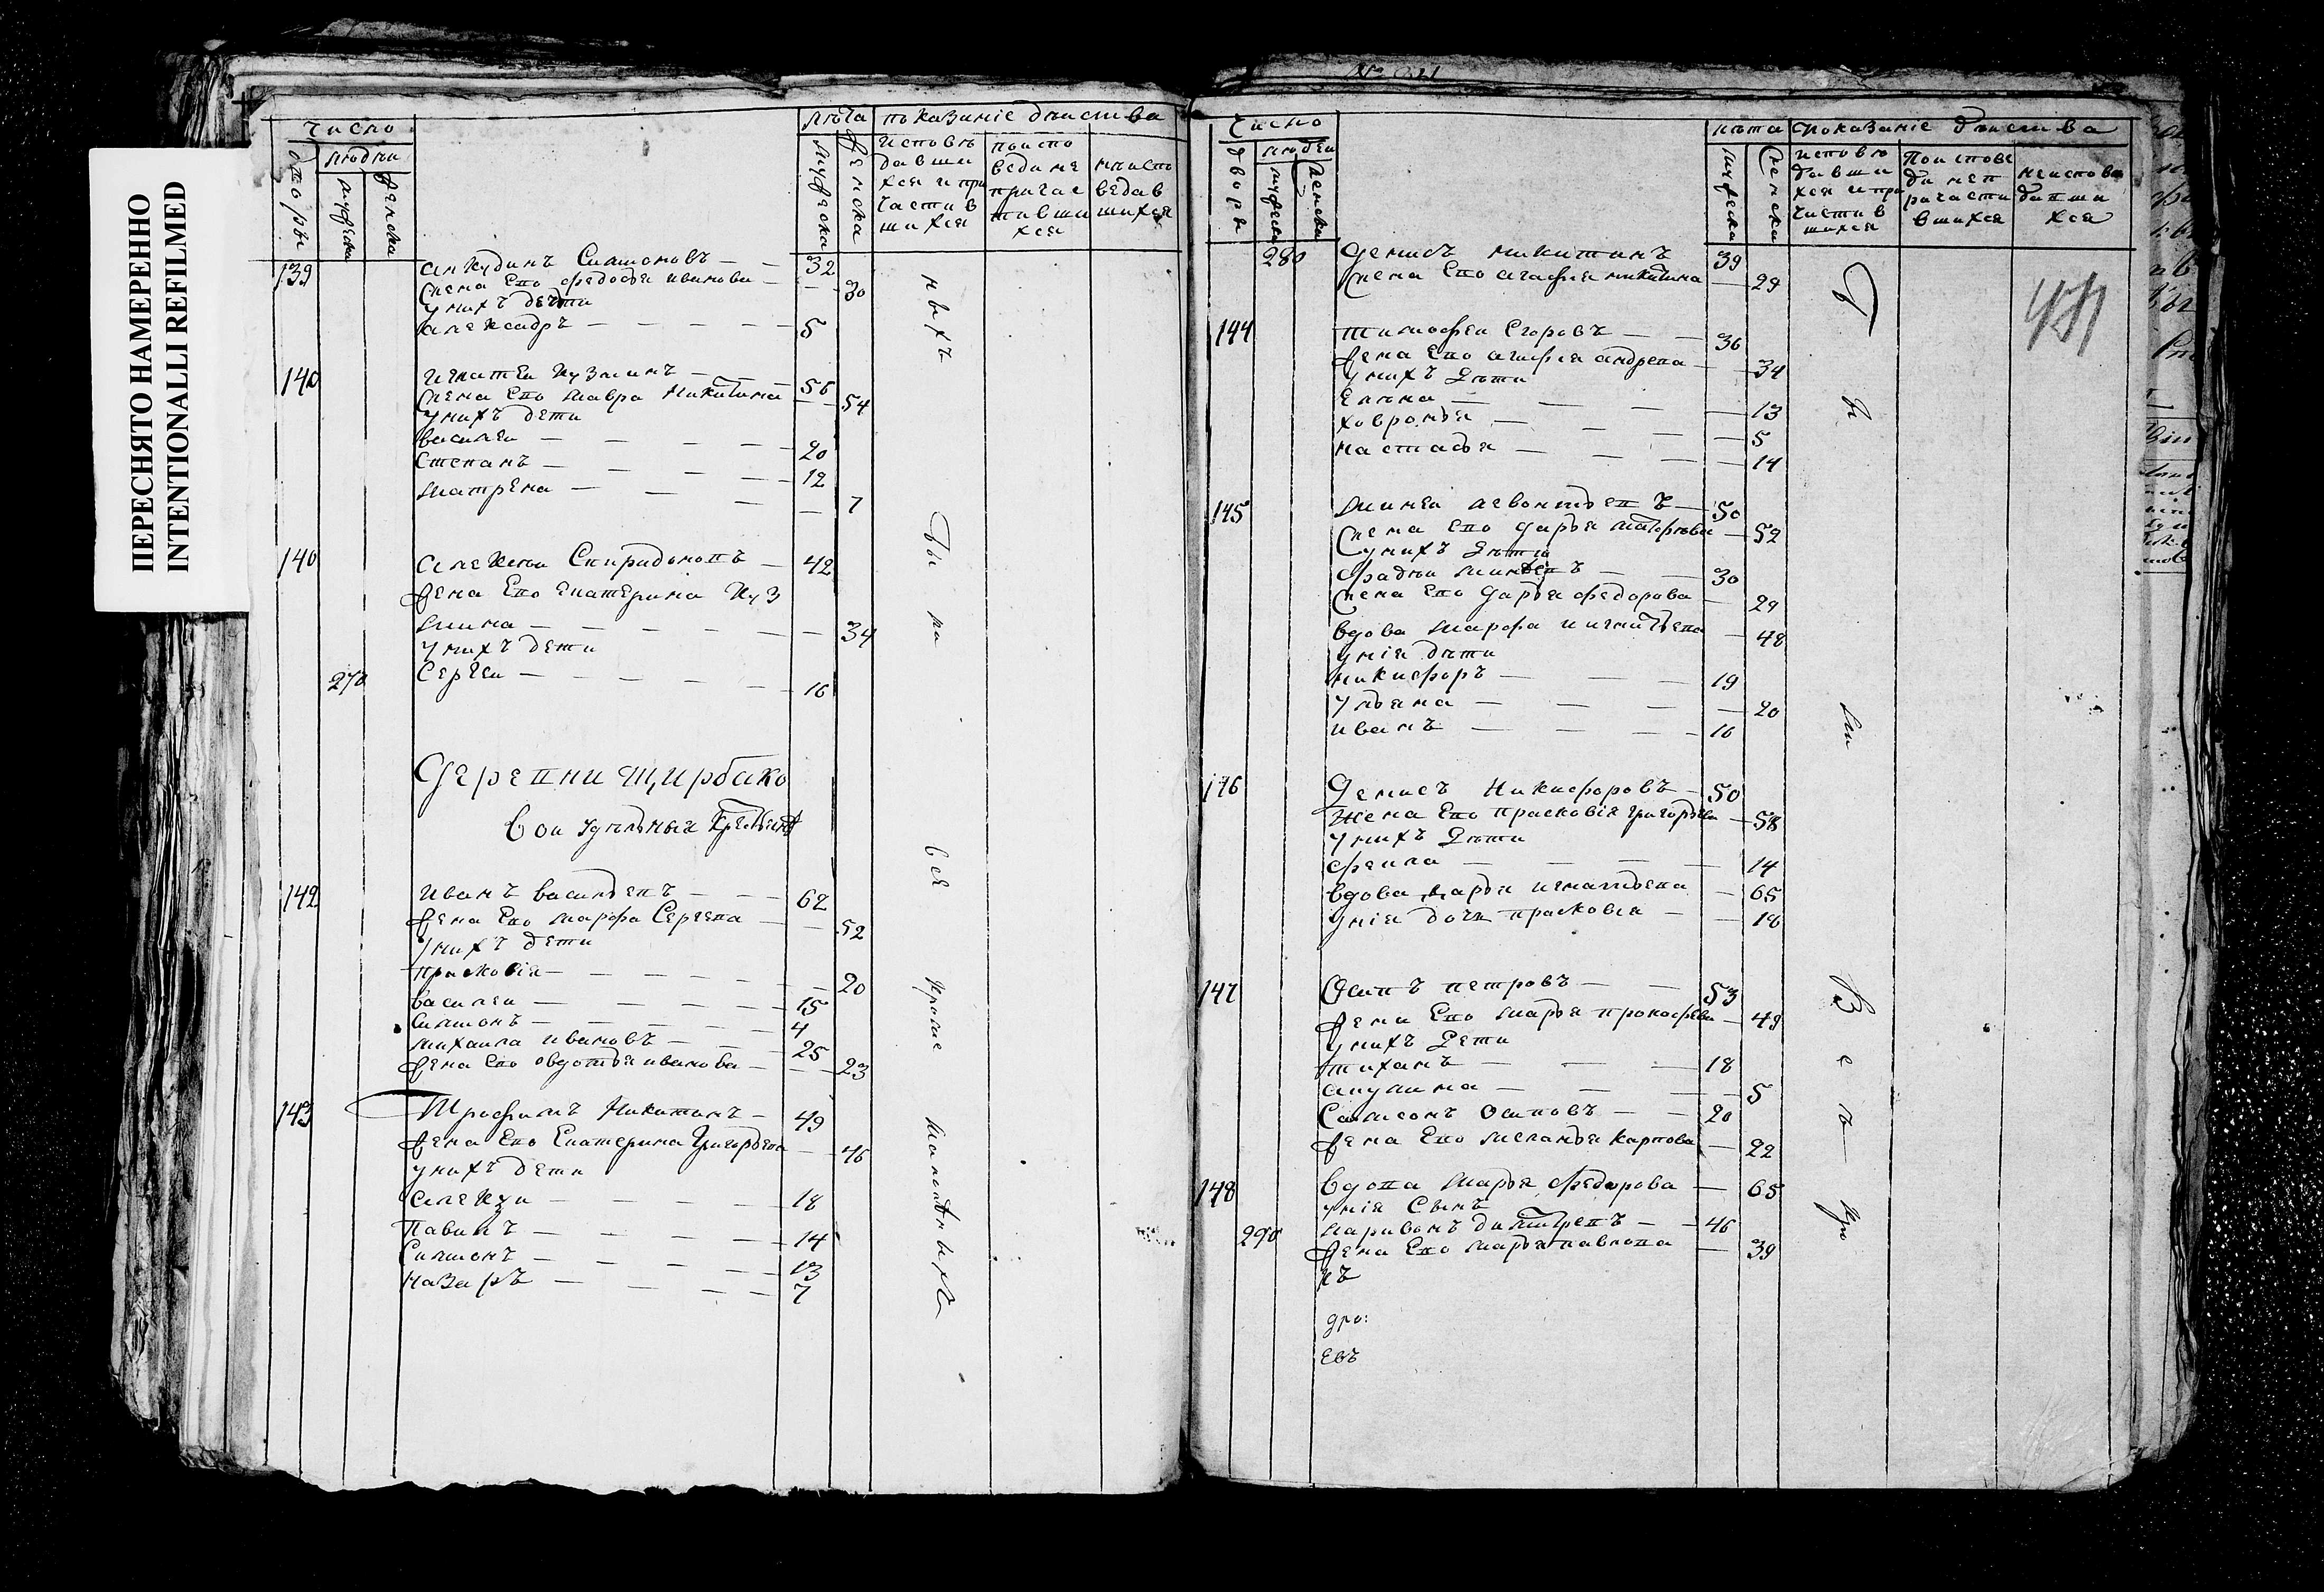 ПЕРЕСНЯТО НАМЕРЕННО
INTENTIONALLI REFILMED
число
люде
лѣта показание дѣиства
мужеска
женска
исповѣ
давши
хся и при
части в
шихся
поиспо
ведине
причас
тивши
хся
неиспо
ведав
шихся
139 анкудинъ Симоновъ 32
жена Ево федосья иванова 30
унихъ дети
александръ 5
140 игнатеи кузминъ 56
жена Ево мавра никитина 54
унихъ дети
василеи 20
Степанъ 12
матрена 7
140 алексѣи Спиридоновъ 42
жена Ево екатерина куз
мина 34
унихъ дети
270 Сергеи 16
Деревни щирбако
вои удѣльныя
142 иванъ васильевъ 62
жена Ево марфа Сергева 52
унихъ дети
прасковія 20
василеи 15
Симонъ 4
михаила ивановъ 25
жена Ево овдотья иванова 23
143 Трофимъ Никитинъ 49
жена Ево Екатерина Григорьева 46
унихъ дети
алекѣи 18
Павилъ 14
Симонъ 13
назаръ 7
нихъ
вся
кроме
число
дворы
людеи
мужеска
женска
лѣта показаніе дѣиства
мужеска
женска
исповѣ
давши
хся и при
части в
шихся
Поиспове
ди неп
ричасти
вшихся
неиспове
давши
хся
280 Денисъ никитинъ 39
жена Ево агафия никитина 29
144 тимофеи Егоровъ 36
жена Ево агафия андрева 34
унихъ дѣти
Елена 13
ховронья 5
настасья 14
145 минеи левонтьевъ 50
жена Ево дарья 52
унихъ дѣти
фадѣи минѣевъ 30
жена Ево дарья федорова 29
вдова марфа игнатьева 48
унія дѣти
никифоръ 19
ульяна 20
иванъ 16
146 Денисъ Никифоровъ 50
жена Ево прасковія григорьева 58
унихъ дѣти
фекла 14
вдова дарья игнатьева 65
унія дочь прасковья 18
147 Осипъ петровъ 53
жена Ево марья прокофева 49
унихъ дети
тиханъ 18
акулина 5
Самсонъ Осиповъ 20
жена Ево меланья карпова 22
148 вдова марья федорова 65
унія Сынъ
290 ларивонъ дмитревъ 46
жена Ево марья павлова 39
къ
дро:
евъ